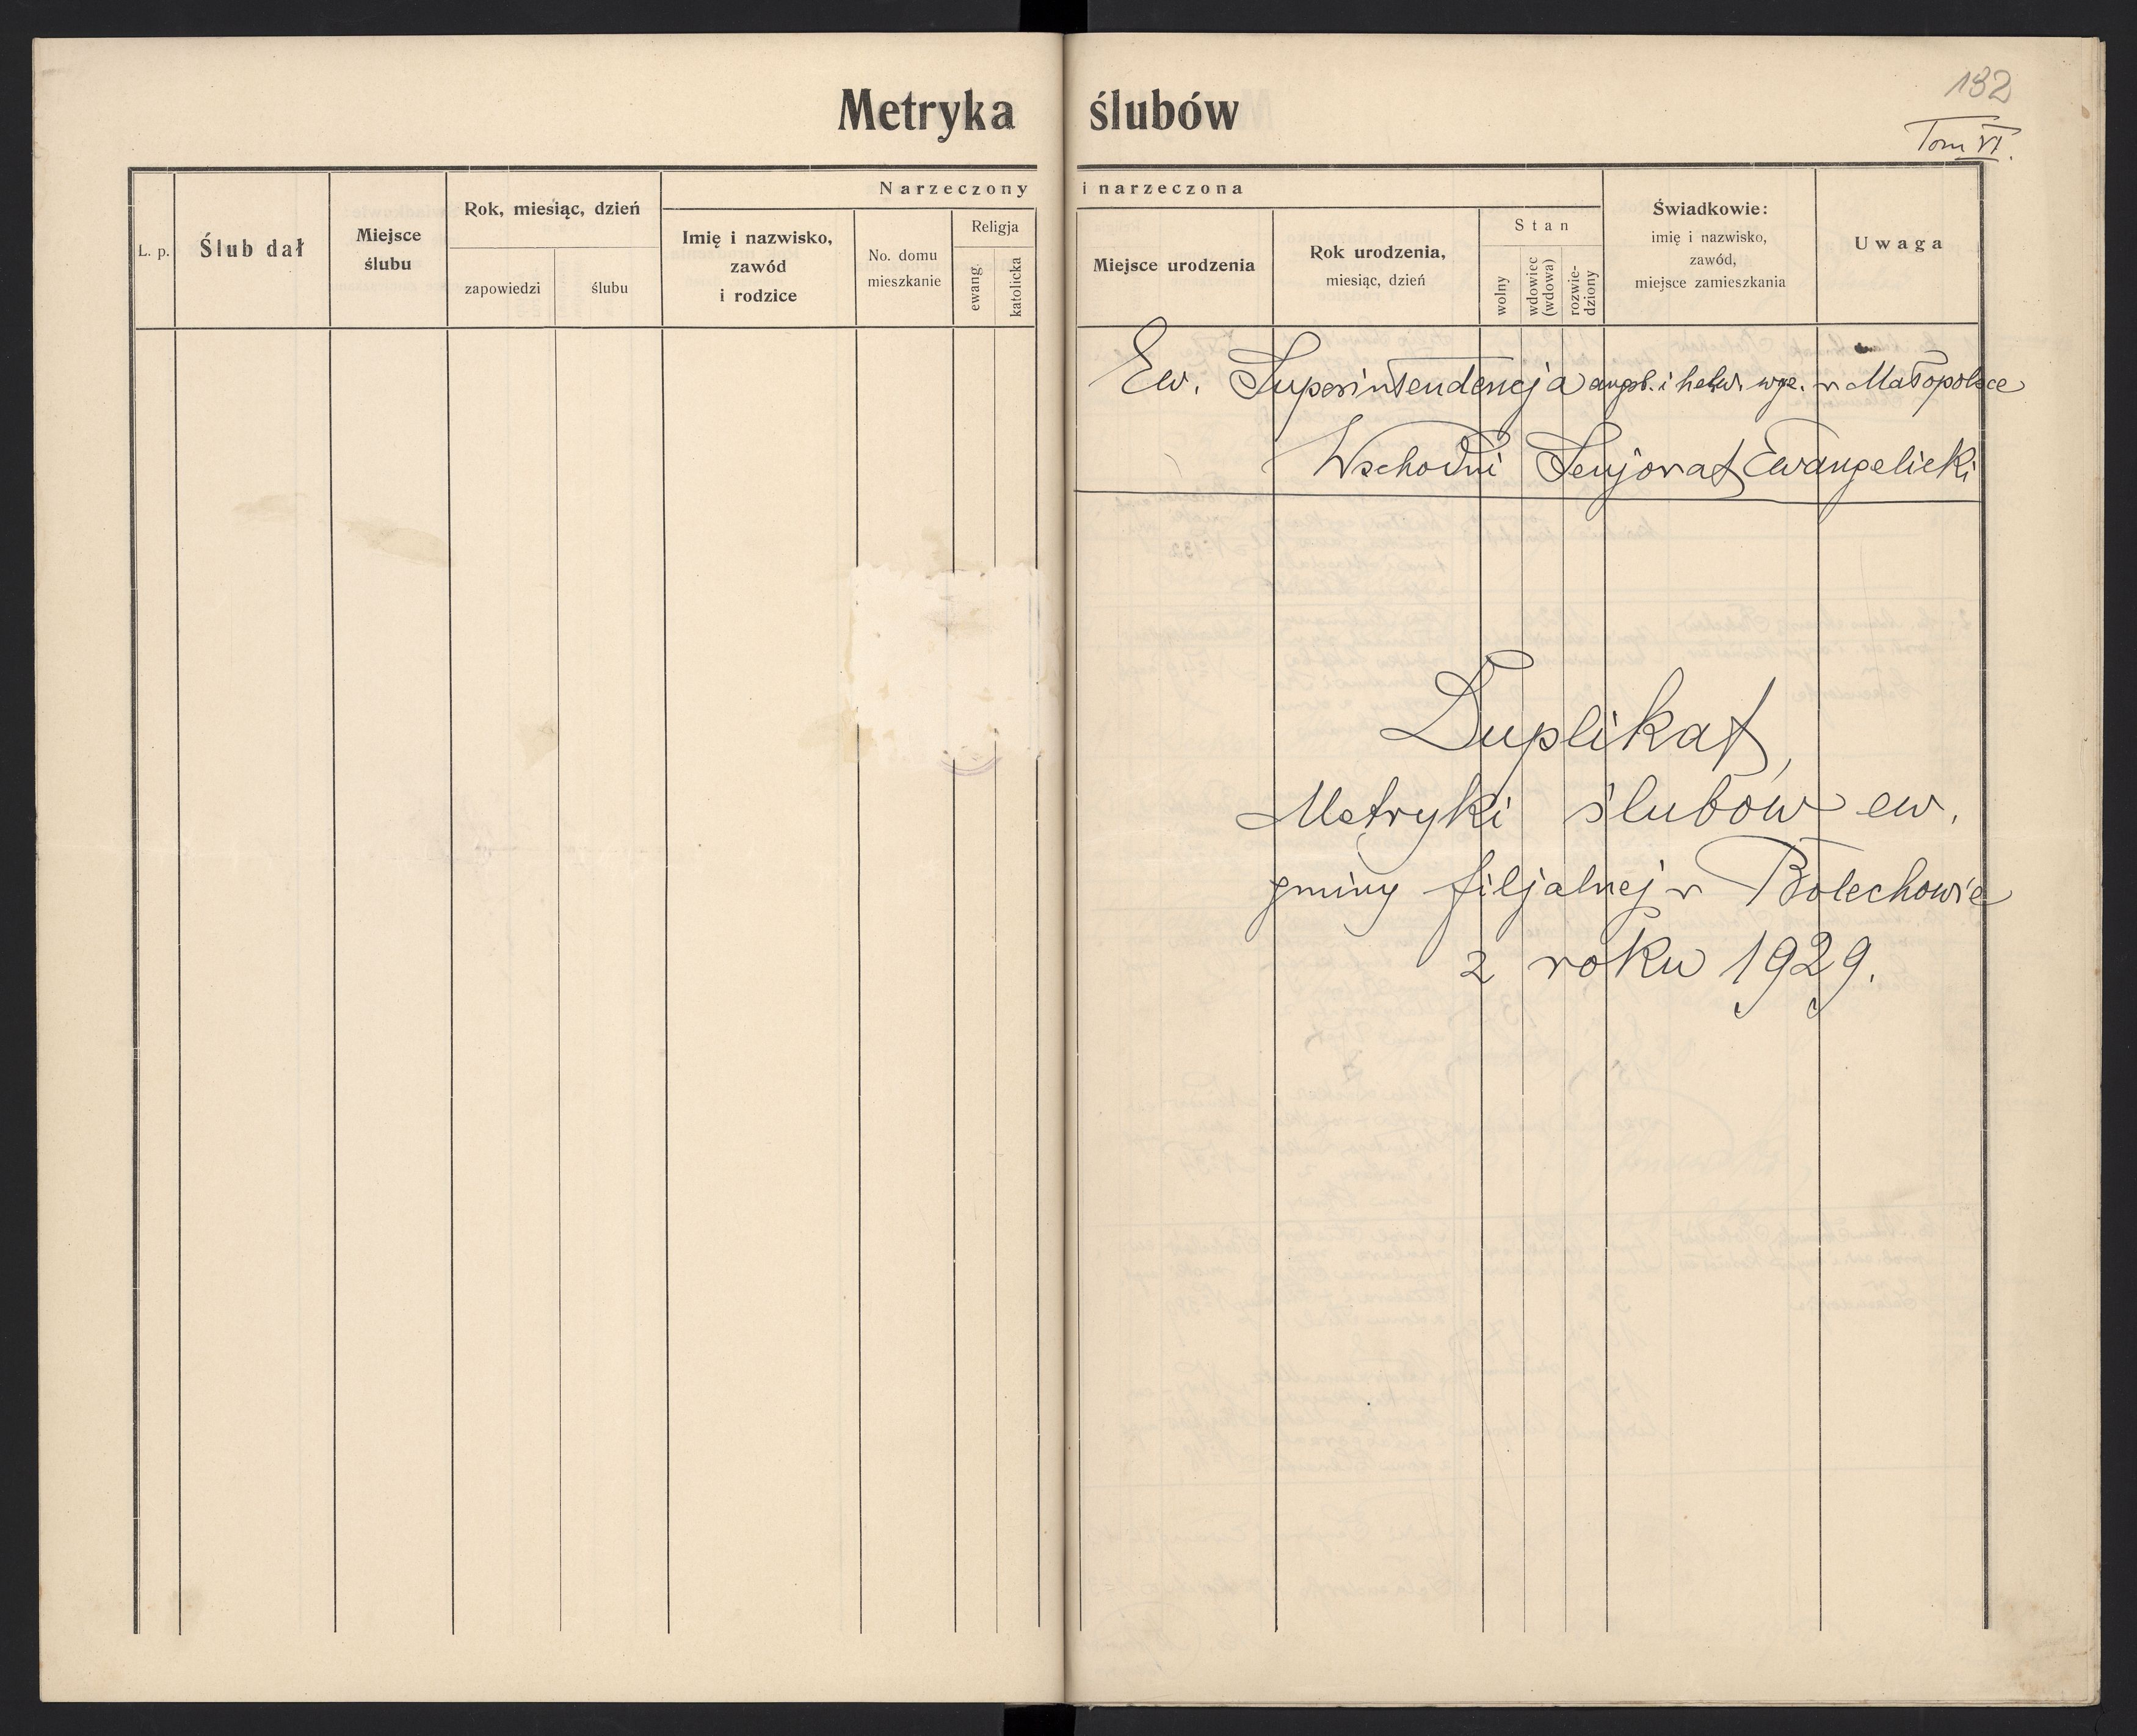 Metryka ślubów
132
Tom VI.
L. p.
Ślub dał
Miejsce
ślubu
Rok, miesiąc, dzień
zapowiedzi
ślubu
Narzeczony i narzeczona
Imię i nazwisko,
zawód
i rodzice
No. domu
mieszkanie
Religja
ewang.
katolicka
Miejsce urodzenia
Rok urodzenia,
miesiąc, dzień
Stan
wolny
wdowiec
(wdowa)
rozwie-
dziony
Świadkowie:
imię i nazwisko,
zawód,
miejsce zamieszkania
Uwaga
Ew. Superintendencja augsb. i helw. wyz. w Małopolsce
Wschodni Senjorat Ewangelicki
Duplikat
Metryki ślubów ew.
gminy filjalnej w Bolechowie
z roku 1929.